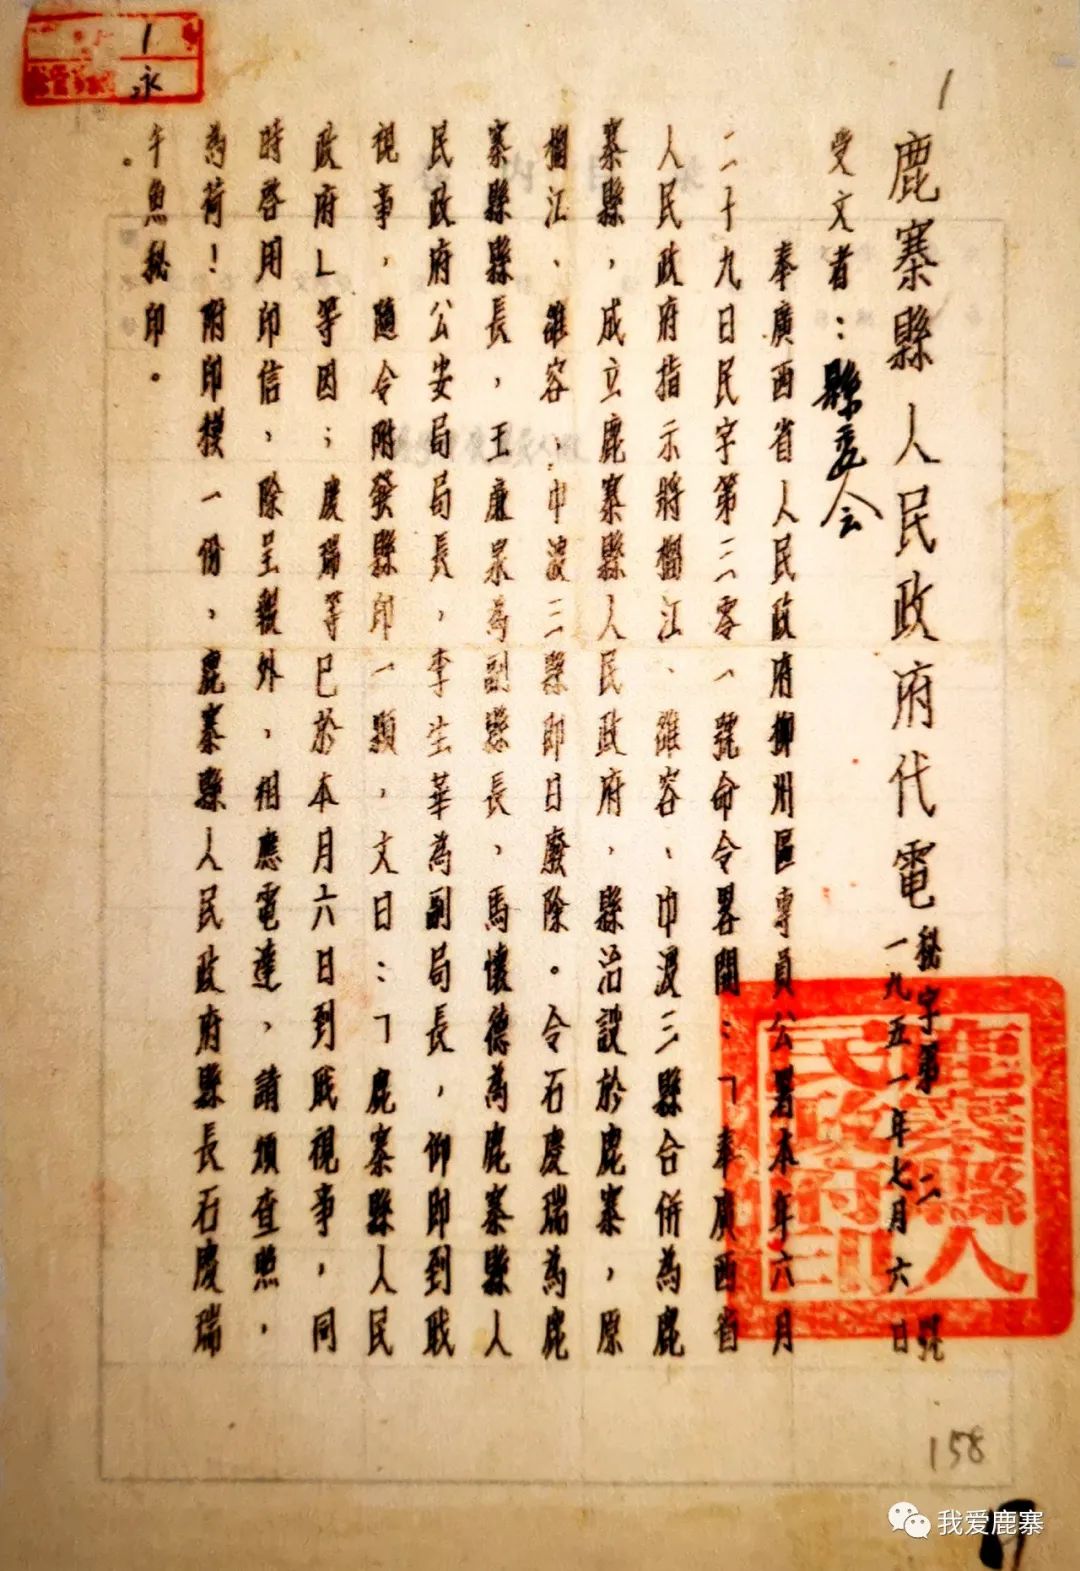 1
永
1
鹿寨縣人民政府代電
秘字第二號
一九五一年七月六日
受文者：縣委会
奉廣西省人民政府柳州區專員公署本年六月
二十九日民字第三二零一號命令畧開：「奉廣西省
人民政府指示將榴江、雒容、中渡三縣合併為鹿
寨縣，成立鹿寨縣人民政府，縣治設於鹿寨，原
榴江、雒容、中渡三縣即日廢除。令石慶瑞為鹿
寨縣縣長，王廉泉為副縣長，馬懷德為鹿寨縣人
民政府公安局局長，李生華為副局長，仰即到戝
視事，隨令附發縣印一顆，文曰：「鹿寨縣人民
政府」等因；慶瑞等已於本月六日到戝視事，同
時啓用印信，除呈報外，相應電達，請煩查照，
為荷！附印模一份，鹿寨縣人民政府縣長石慶瑞
午魚秘印。
鹿寨縣人
民政府印
158
我爱鹿寨